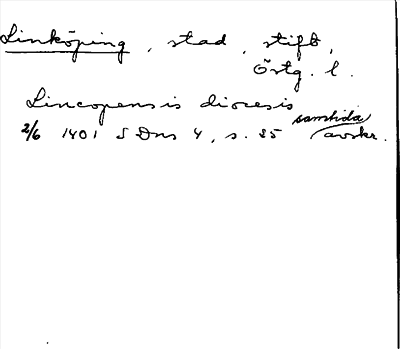 Linköping, stad, stift,
Östg. l.
Lincopensis diocesis
2/6 1401 SDns 4, s. 25 samtida avskr.